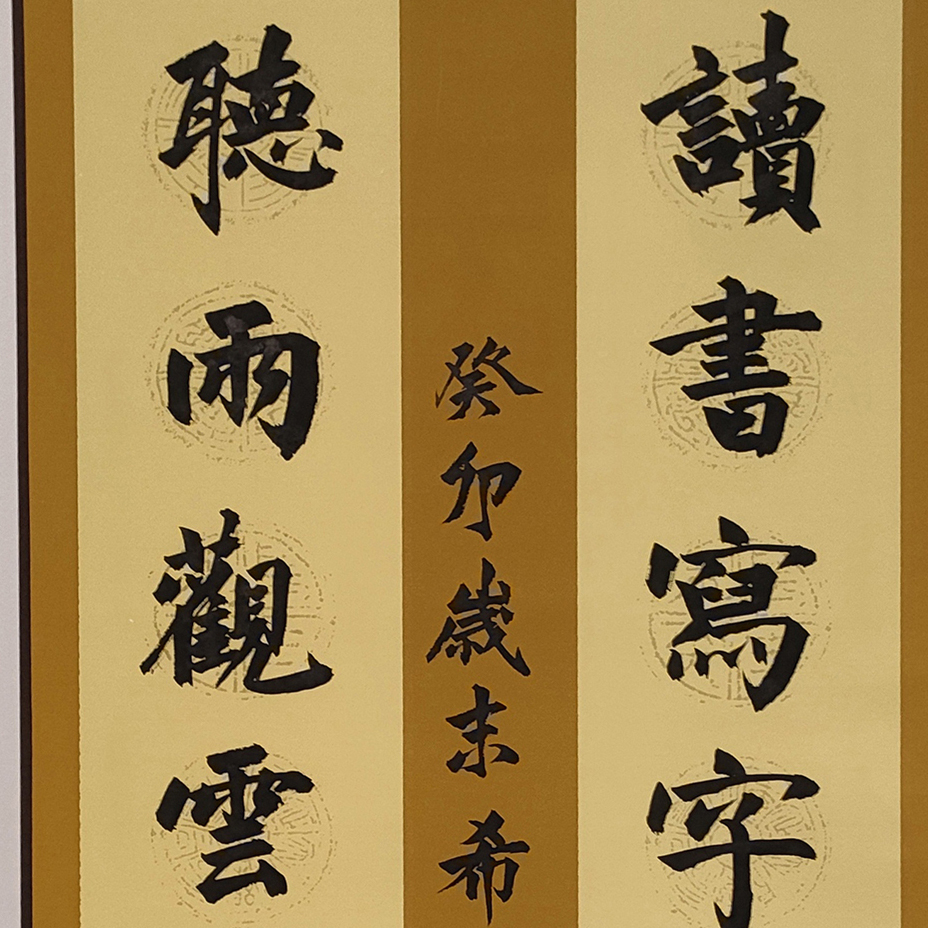 讀書寫字
癸卯歲末希
聽雨觀雲